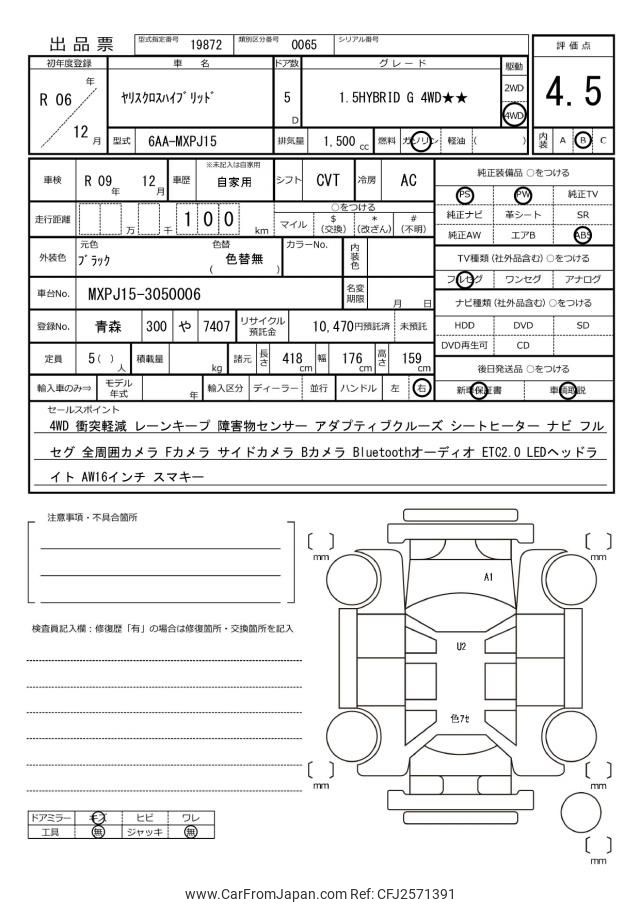 出品票 型式指定番号 19872 類別区分番号 0065 シリアル番号
評価点
4.5
内装 A B C
初年度登録 車名 ドア数 グレード 駆動
R 06 年 12 月
ヤリスクロスハイブリッド 5 D 1.5HYBRID G 4WD★★ 2WD 4WD
型式 6AA-MXPJ15 排気量 1,500 cc 燃料 ガソリン 軽油 ( )
車検 R 09 年 12 月 車歴 ※未記入は自家用 自家用 シフト CVT 冷房 AC
走行距離 万 千 1 0 0 km ○をつける
マイル $(交換) *(改ざん) #(不明)
外装色 元色 ブラック 色替 ( 色替無 ) カラーNo. 内装色
車台No. MXPJ15-3050006 名変期限 月 日
登録No. 青森 300 や 7407 リサイクル預託金 10,470円預託済 未預託
定員 5( )人 積載量 kg 諸元 長さ 418 cm 幅 176 cm 高さ 159 cm
輸入車のみ⇒ モデル年式 年 輸入区分 ディーラー 並行 ハンドル 左 右
純正装備品 ○をつける
PS PW 純正TV
純正ナビ 革シート SR
純正AW エアB ABS
TV種類(社外品含む) ○をつける
フルセグ ワンセグ アナログ
ナビ種類(社外品含む) ○をつける
HDD DVD SD
DVD再生可 CD
後日発送品 ○をつける
新車保証書 車輌取説
セールスポイント
4WD 衝突軽減 レーンキープ 障害物センサー アダプティブクルーズ シートヒーター ナビ フル
セグ 全周囲カメラ Fカメラ サイドカメラ Bカメラ Bluetoothオーディオ ETC2.0 LEDヘッドラ
イト AW16インチ スマキー
注意事項・不具合箇所
検査員記入欄:修復歴「有」の場合は修復箇所・交換箇所を記入
ドアミラー キズ ヒビ ワレ
工具 無 ジャッキ 無
〔 〕mm
〔 〕mm
A1
U2
色ｱｾ
〔 〕mm
〔 〕mm
〔 〕mm
www.CarFromJapan.com Ref: CFJ2571391